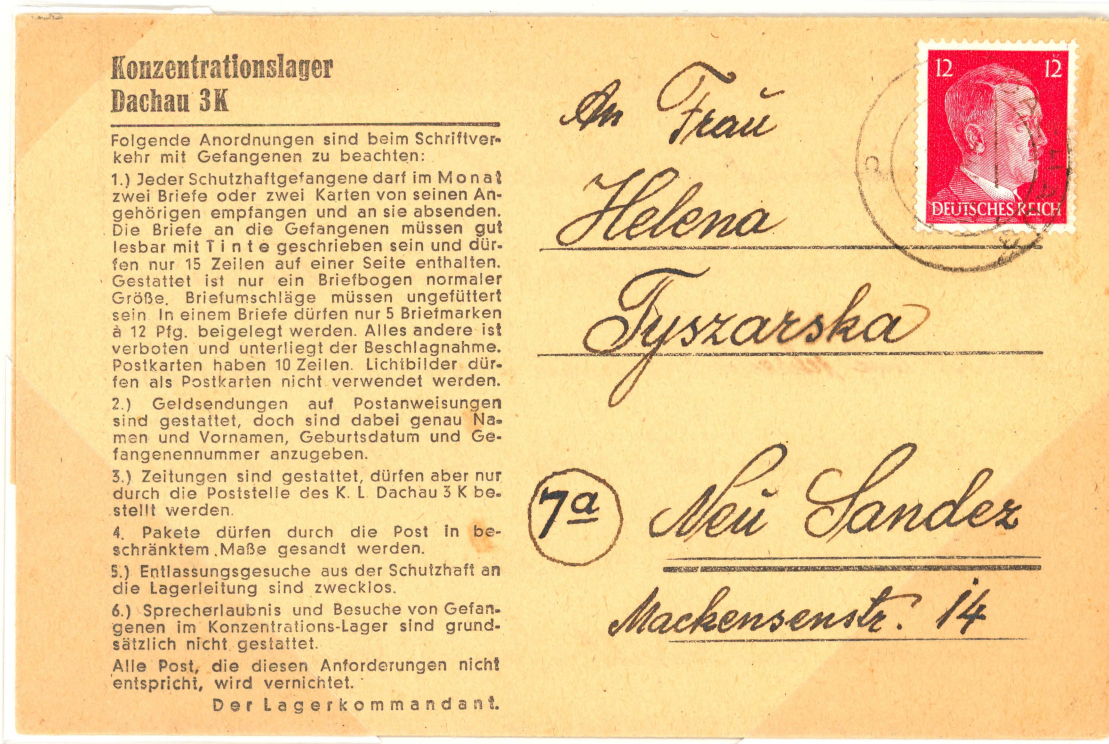 Konzentrationslager
Dachau 3K
Folgende Anordnungen sind beim Schriftver-
kehr mit Gefangenen zu beachten:
1.) Jeder Schutzhaftgefangene darf im Monat
zwei Briefe oder zwei Karten von seinen An-
gehörigen empfangen und an sie absenden.
Die Briefe an die Gefangenen müssen gut
lesbar mit Tinte geschrieben sein und dür-
fen nur 15 Zeilen auf einer Seite enthalten.
Gestattet ist nur ein Briefbogen normaler
Größe. Briefumschläge müssen ungefüttert
sein In einem Briefe dürfen nur 5 Briefmarken
à 12 Pfg. beigelegt werden. Alles andere ist
verboten und unterliegt der Beschlagnahme.
Postkarten haben 10 Zeilen. Lichtbilder dür-
fen als Postkarten nicht verwendet werden.
2.) Geldsendungen auf Postanweisungen
sind gestattet, doch sind dabei genau Na-
men und Vornamen, Geburtsdatum und Ge-
fangenennummer anzugeben.
3.) Zeitungen sind gestattet, dürfen aber nur
durch die Poststelle des K. L. Dachau 3 K be-
stellt werden.
4. Pakete dürfen durch die Post in be-
schränktem Maße gesandt werden.
5.) Entlassungsgesuche aus der Schutzhaft an
die Lagerleitung sind zwecklos.
6.) Sprecherlaubnis und Besuche von Gefan-
genen im Konzentrations-Lager sind grund-
sätzlich nicht gestattet.
Alle Post, die diesen Anforderungen nicht
entspricht, wird vernichtet.
Der Lagerkommandant.
12 12
DEUTSCHES REICH
An Frau
Helena
Tyszarska
7a Neu Sandez
Mackensenstr. 14